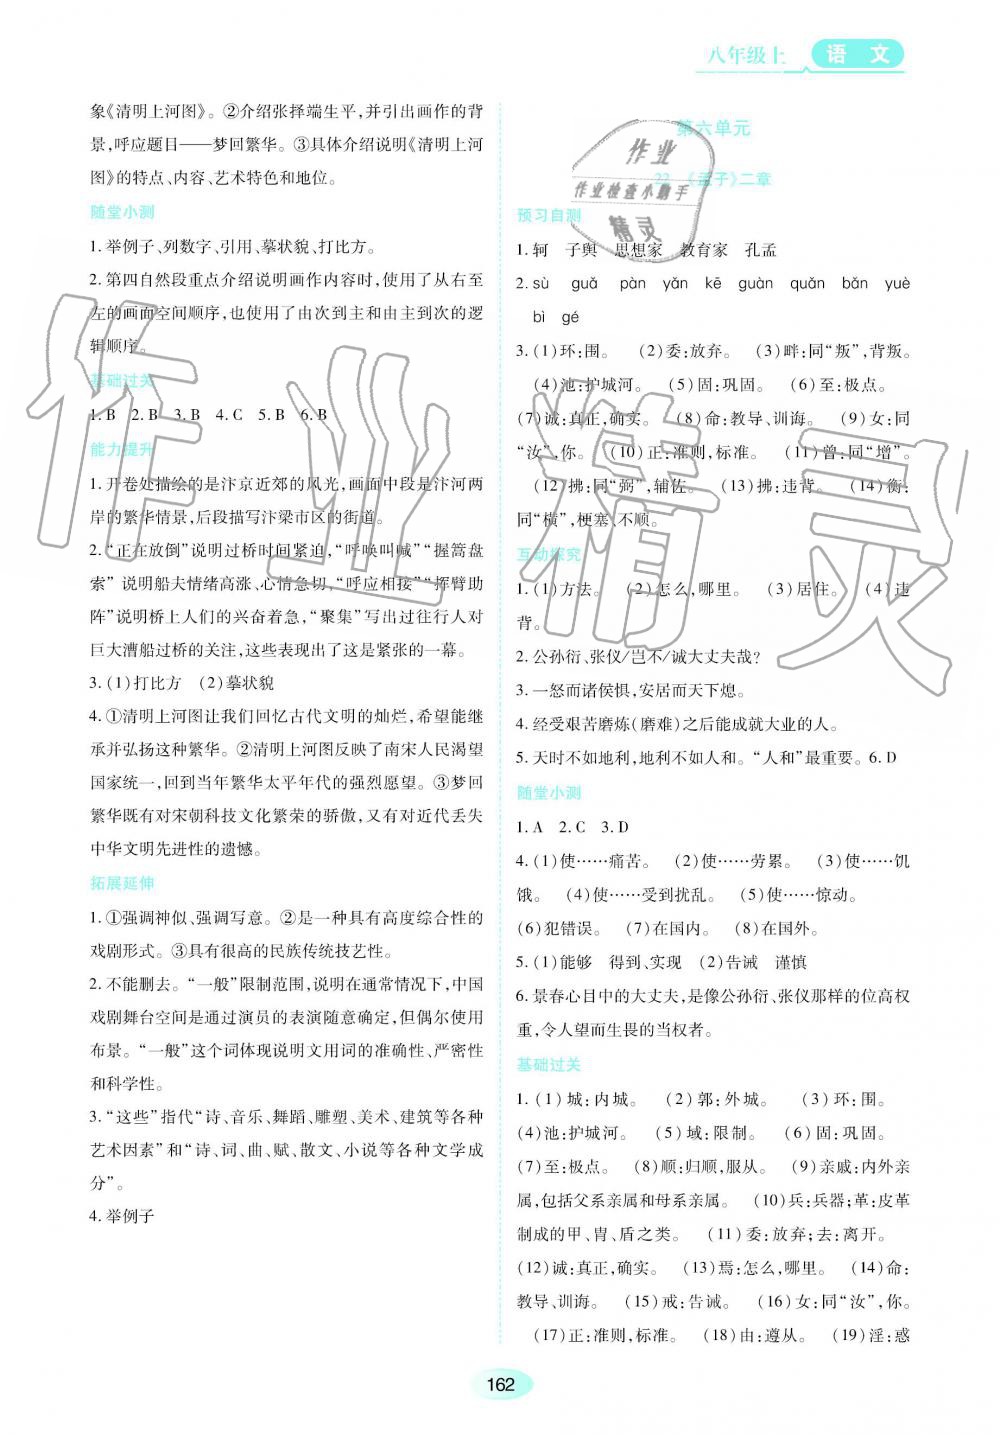 八年级上 语 文
象《清明上河图》。②介绍张择端生平,并引出画作的背
景,呼应题目——梦回繁华。③具体介绍说明《清明上河
图》的特点、内容、艺术特色和地位。
随堂小测
1. 举例子、列数字、引用、摹状貌、打比方。
2. 第四自然段重点介绍说明画作内容时,使用了从右至
左的画面空间顺序,也使用了由次到主和由主到次的逻
辑顺序。
基础过关
1. B 2. B 3. B 4. C 5. B 6. B
能力提升
1. 开卷处描绘的是汴京近郊的风光,画面中段是汴河两
岸的繁华情景,后段描写汴梁市区的街道。
2. “正在放倒”说明过桥时间紧迫,“呼唤叫喊”“握篙盘
索” 说明船夫情绪高涨、心情急切,“呼应相接”“挥臂助
阵”说明桥上人们的兴奋着急,“聚集”写出过往行人对
巨大漕船过桥的关注,这些表现出了这是紧张的一幕。
3. (1)打比方 (2)摹状貌
4. ①清明上河图让我们回忆古代文明的灿烂,希望能继
承并弘扬这种繁华。②清明上河图反映了南宋人民渴望
国家统一,回到当年繁华太平年代的强烈愿望。③梦回
繁华既有对宋朝科技文化繁荣的骄傲,又有对近代丢失
中华文明先进性的遗憾。
拓展延伸
1. ①强调神似、强调写意。②是一种具有高度综合性的
戏剧形式。③具有很高的民族传统技艺性。
2. 不能删去。“一般”限制范围,说明在通常情况下,中国
戏剧舞台空间是通过演员的表演随意确定,但偶尔使用
布景。“一般”这个词体现说明文用词的准确性、严密性
和科学性。
3. “这些”指代“诗、音乐、舞蹈、雕塑、美术、建筑等各种
艺术因素”和“诗、词、曲、赋、散文、小说等各种文学成
分”。
4. 举例子
第六单元
22 《孟子》二章
预习自测
1. 轲 子舆 思想家 教育家 孔孟
2. sù guǎ pàn yǎn kē guàn quǎn bǎn yuè
bì gé
3. (1)环:围。 (2)委:放弃。 (3)畔:同“叛”,背叛。
(4)池:护城河。 (5)固:巩固。 (6)至:极点。
(7)诚:真正,确实。 (8)命:教导、训诲。 (9)女:同
“汝”,你。 (10)正:准则,标准。 (11)曾:同“增”。
(12)拂:同“弼”,辅佐。 (13)拂:违背。 (14)衡:
同“横”,梗塞、不顺。
互动探究
1. (1)方法。 (2)怎么,哪里。 (3)居住。 (4)违
背。
2. 公孙衍、张仪/岂不/诚大丈夫哉?
3. 一怒而诸侯惧,安居而天下熄。
4. 经受艰苦磨炼(磨难)之后能成就大业的人。
5. 天时不如地利,地利不如人和。“人和”最重要。6. D
随堂小测
1. A 2. C 3. D
4. (1)使……痛苦。 (2)使……劳累。 (3)使……饥
饿。 (4)使……受到扰乱。 (5)使……惊动。
(6)犯错误。 (7)在国内。 (8)在国外。
5. (1)能够 得到、实现 (2)告诫 谨慎
6. 景春心目中的大丈夫,是像公孙衍、张仪那样的位高权
重,令人望而生畏的当权者。
基础过关
1. (1)城:内城。 (2)郭:外城。 (3)环:围。
(4)池:护城河。 (5)域:限制。 (6)固:巩固。
(7)至:极点。 (8)顺:归顺,服从。 (9)亲戚:内外亲
属,包括父系亲属和母系亲属。 (10)兵:兵器;革:皮革
制成的甲、胄、盾之类。 (11)委:放弃;去:离开。
(12)诚:真正,确实。 (13)焉:怎么,哪里。 (14)命:
教导、训诲。 (15)戒:告诫。 (16)女:同“汝”,你。
(17)正:准则,标准。 (18)由:遵从。 (19)淫:惑
162
作业
作业检查小助手
精灵
作业精灵